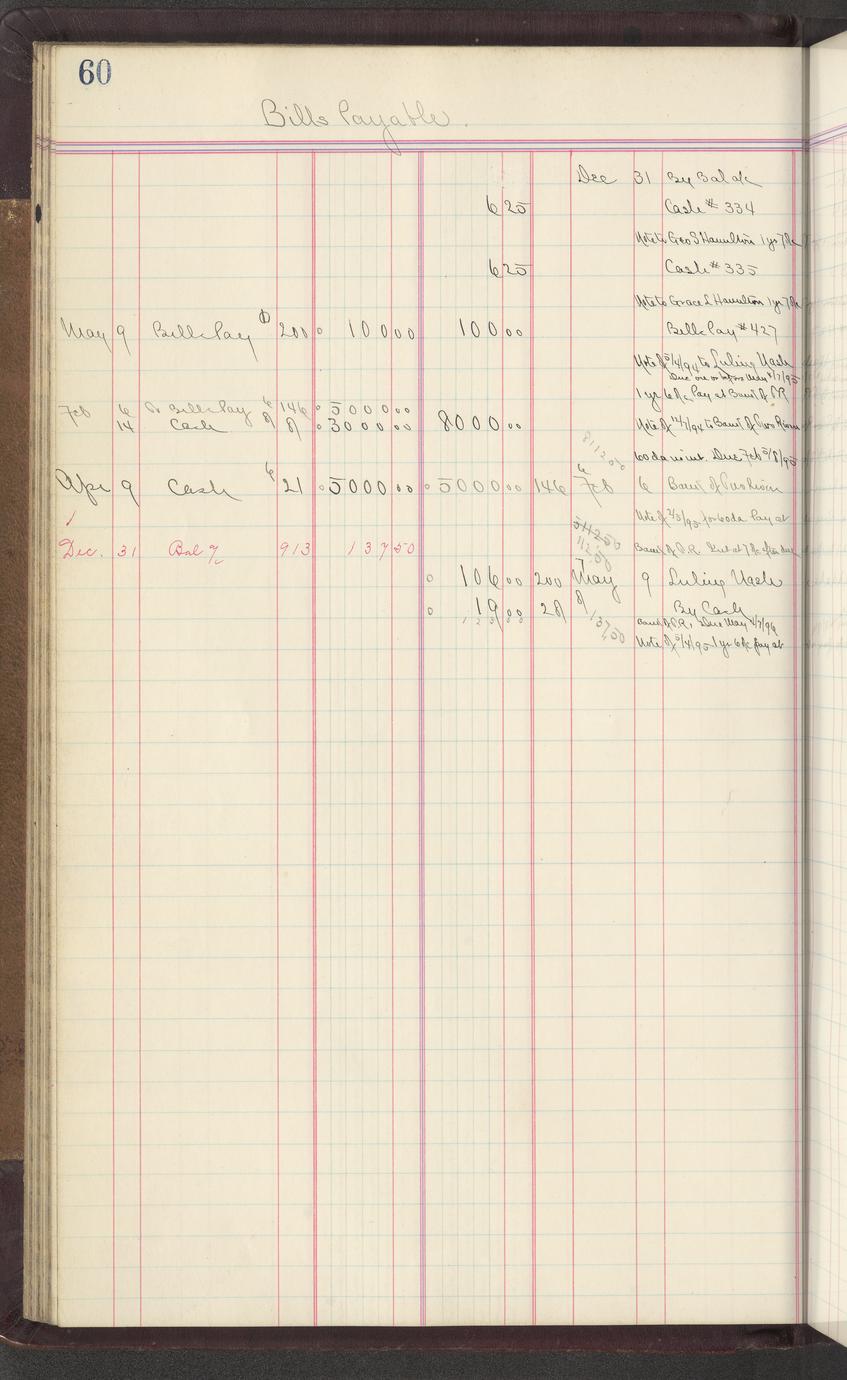 60
Bills Payable.
Dec 31 By Bal d/c
6 25 Cash # 334
Note to Geo S Hamilton 1 yr 7%
6 25 Cash # 335
Note to Grace L Hamilton 1 yr 7%
May 9 Bills Pay 200 100 00 100 00 Bills Pay # 427
Note of 5/4/94 to Luling Nash
Due on or before May 4/7/95
1 yr 6% Pay at Bank of
Feb 6 Bills Pay 6 146 5000 00
14 Cash 8 8 3000 00 8000 00 Note of 12/7/94 to Bank of Two Rivers
8112 50
60 da no int. Due Feb 5/8/95
Apr 9 Cash 6 21 5000 00 5000 00 146 Feb 6 Bank of Two Rivers
Note of 2/5/95 for 60 da Pay at
5112 50
Dec. 31 Bal 913 137 50 Bank of Int at 7% after due
112 50
106 00 200 May 9 Luling Nash
19 00 28 8 By Cash
125 00 137 50 Due May 4/7/96
Note of 5/4/95 1 yr 6% pay at